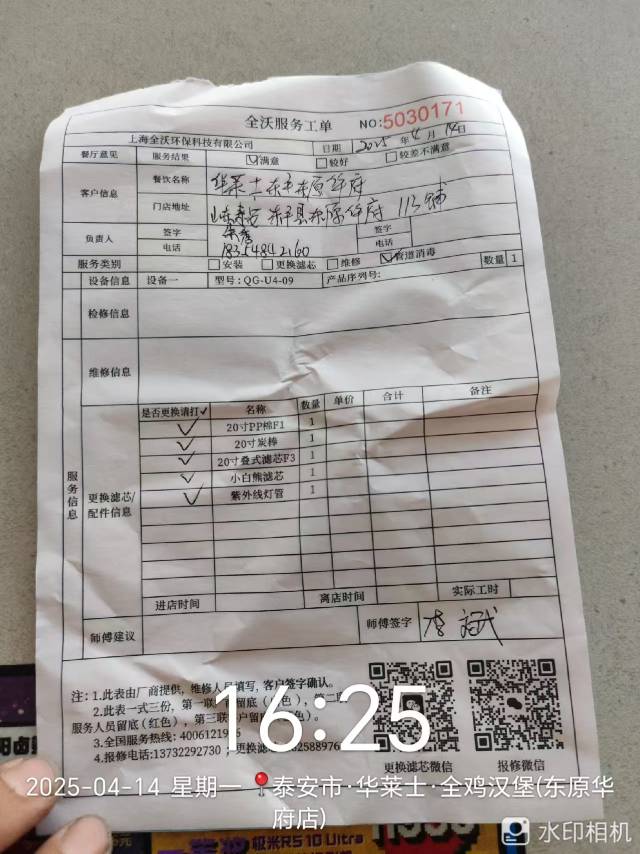 全沃服务工单 NO:5030171
上海全沃环保科技有限公司 日期 2025 年 4 月 14 日
餐厅意见 服务结果 ☑满意 □较好 □较差不满意
客户信息 餐饮名称 华莱士东平东原华府
门店地址 山东泰安东平县东原华府 113铺
负责人 签字 签字
电话 18254842160 电话
服务类别 □安装 □更换滤芯 □维修 ☑管道消毒 数量 1
设备信息 设备一 型号:QG-U4-09 产品序列号:
检修信息
维修信息
服务信息
更换滤芯/配件信息
是否更换请打✓ 名称 数量 单价 合计 备注
✓ 20寸PP棉F1 1
✓ 20寸炭棒 1
✓ 20寸叠式滤芯F3 1
✓ 小白熊滤芯 1
✓ 紫外线灯管 1
进店时间 离店时间 实际工时
师傅建议 师傅签字 李
注: 1.此表由厂商提供, 维修人员填写, 客户签字确认。
2.此表一式三份, 第一联 留底( 色), 第二
服务人员留底(红色), 第三联 户留 色)。
3.全国服务热线: 4006121
4.报修电话:13732292730 ; 更换滤 258897
更换滤芯微信 报修微信
16:25
2025-04-14 星期一 泰安市·华莱士·全鸡汉堡(东原华
府店)
水印相机
极米RS10 Ultra